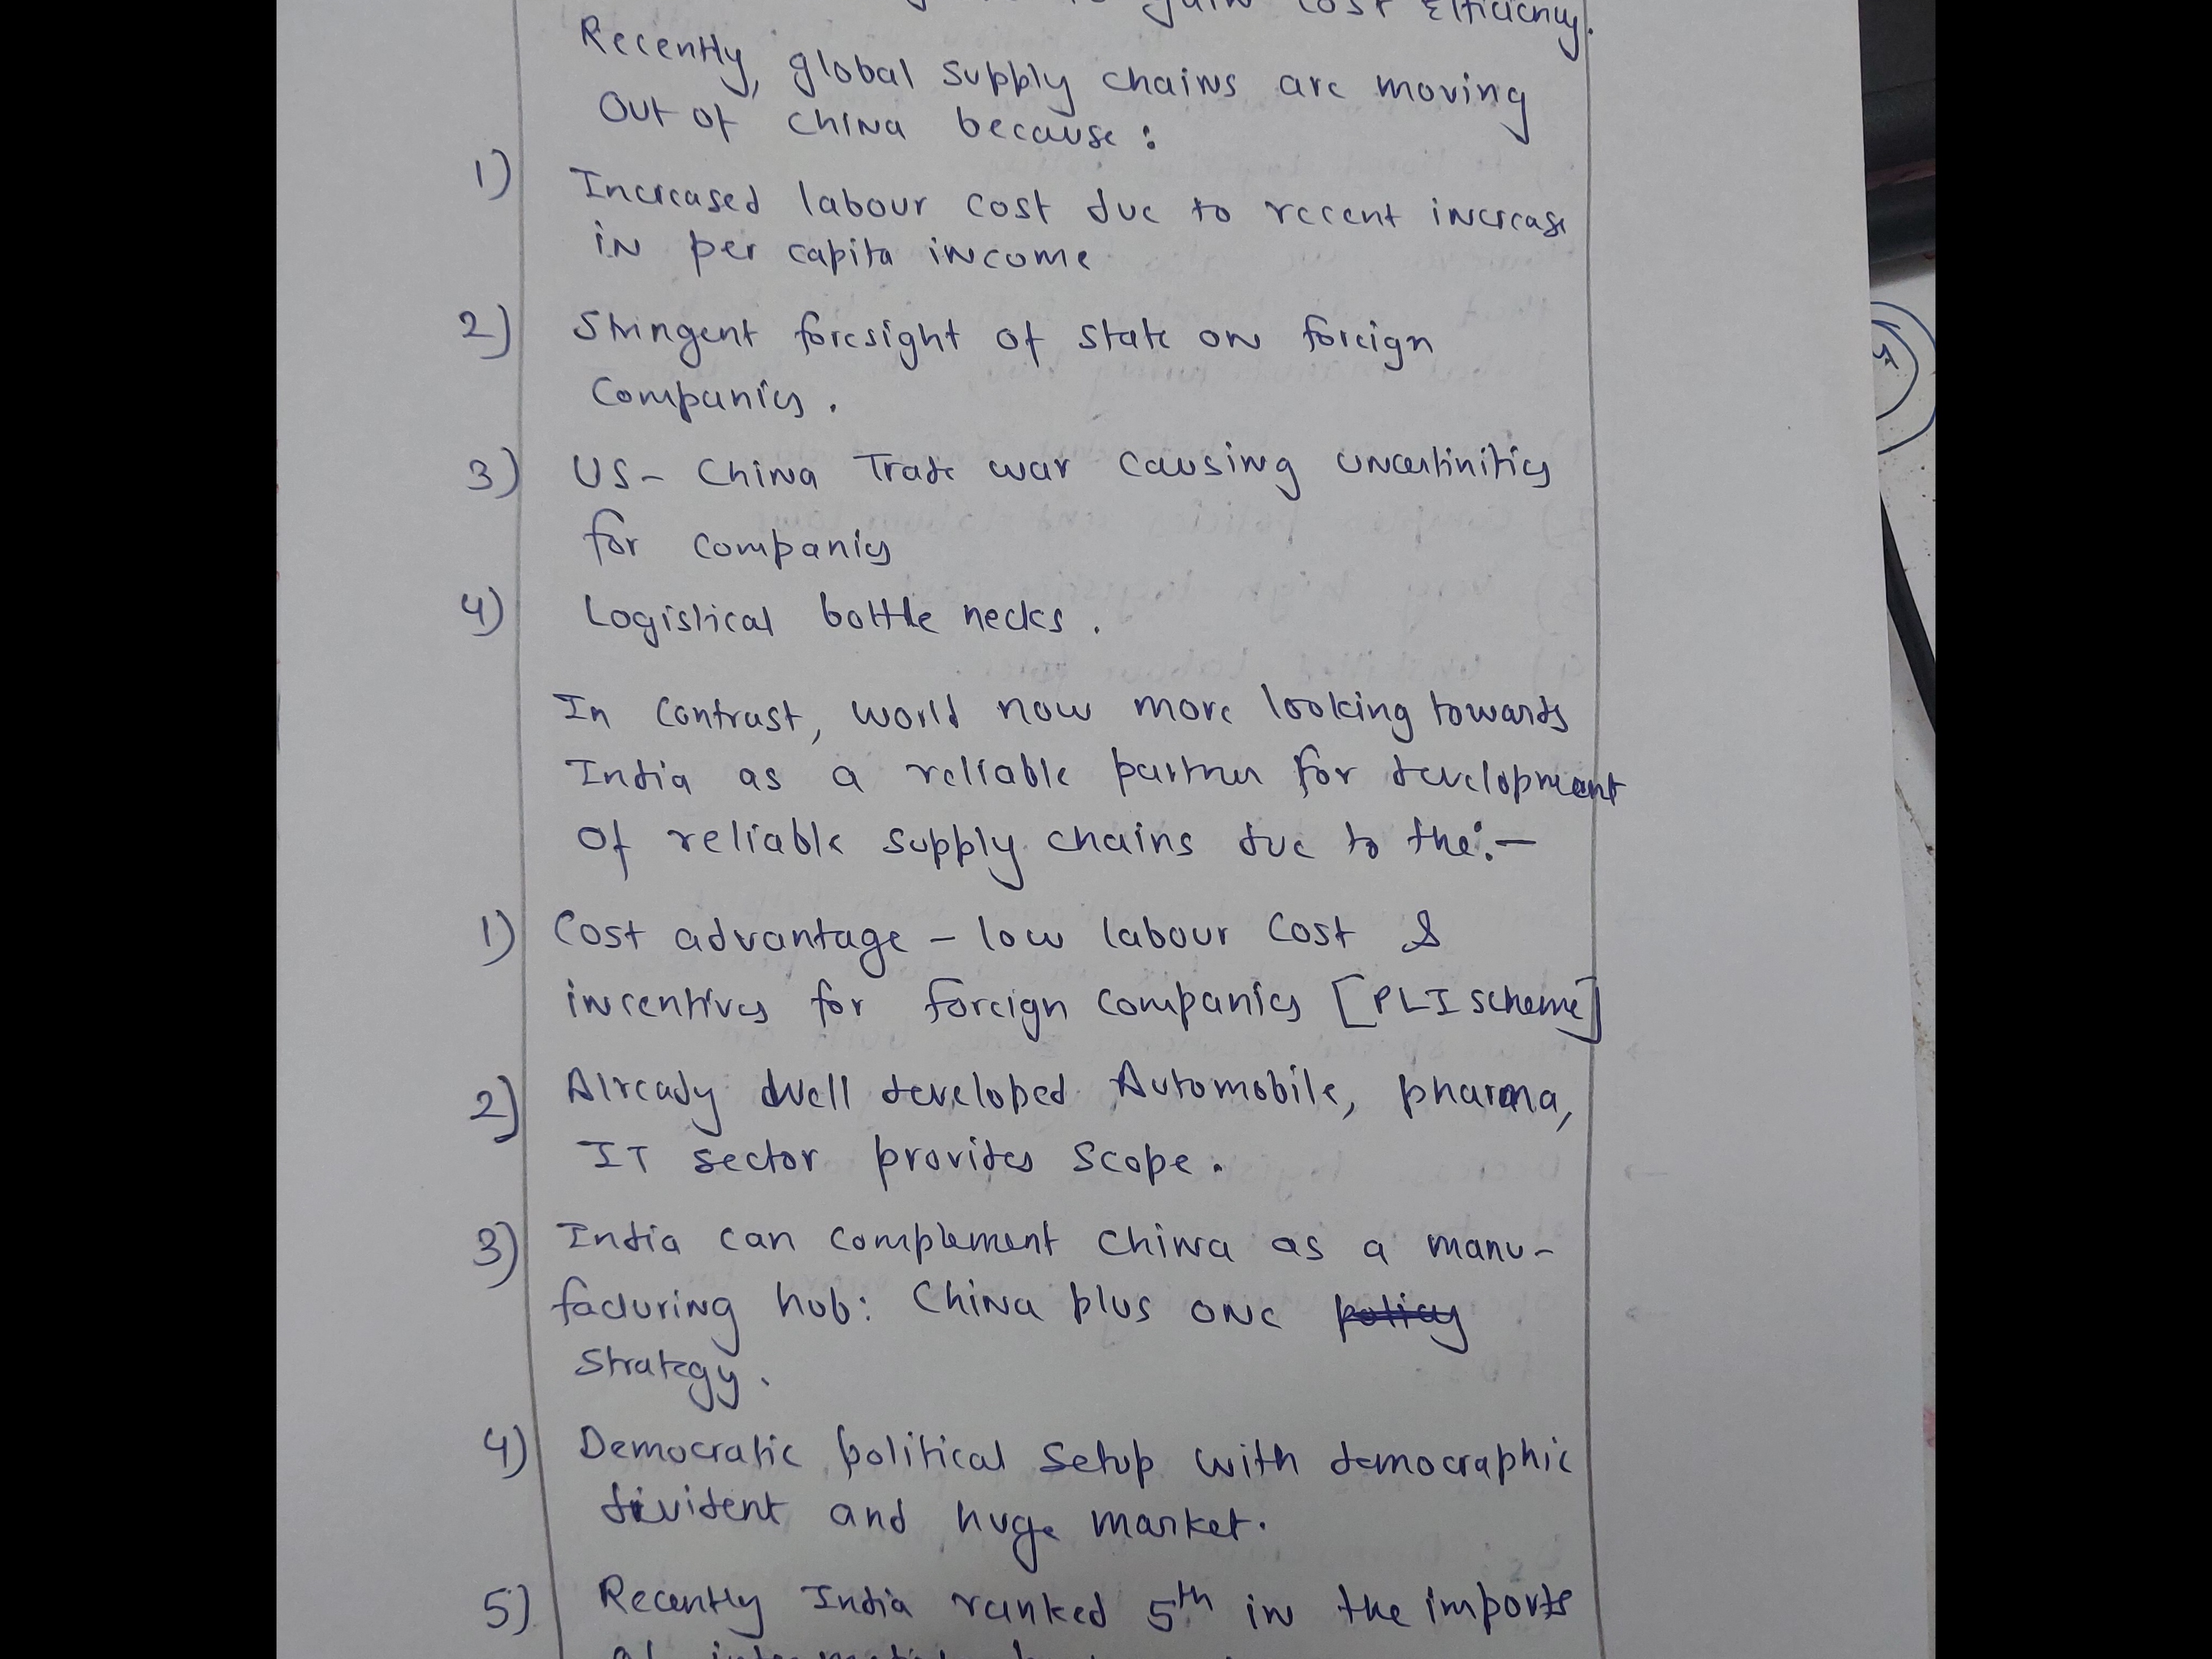 to gain cost efficiency.
Recently, global supply chains are moving
Out of China because :
1) Increased labour cost due to recent increase
in per capita income
2) Stringent foresight of state on foreign
Companies.
3) US- China Trade war causing uncertinities
for companies
4) Logistical bottle necks.
In contrast, world now more looking towards
India as a reliable partner for development
of reliable supply chains due to the:-
1) Cost advantage - low labour cost &
incentives for foreign companies [PLI scheme]
2) Already well developed Automobile, pharma,
IT sector provides scope.
3) India can complement China as a manu-
facturing hub: China plus one policy
Strategy.
4) Democratic political setup with demographic
divident and huge market.
5) Recently India ranked 5th in the imports